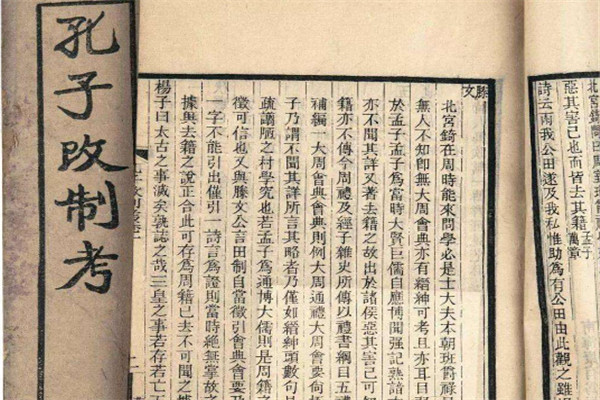 孔子改制考
北宮錡問曰周室班爵祿
惡其害己也而皆去其籍孟子萬章
詩云雨我公田遂及我私惟助為有公田由此觀之雖
滕文
北宮錡在周時能來問學必是士大夫本朝班爵祿
無人不知卽無大周會典亦有縉紳可考且亦耳目
於孟子孟子為當時大賢巨儒自應博聞强記熟諳
亦不聞其詳又著去籍之故出於諸侯惡其害己可
籍亦不傳今周禮及經子雜史所傳以禮書綱目五禮
補編一大周會典會典則例大周通禮大周會要
子乃謂不聞其詳所言其略者乃僅如縉紳頭數句
疏謭陋之村學究也若孟子為通博大儒則是周籍之
徵可信也又與滕文公言田制自當徵引會典會要乃
一字不能引出僅引一詩言為證則當時絕無掌故之
據與去籍之說正合此可存為周籍已去不可聞之據
楊子曰太古之事滅矣孰誌之哉三皇之事若存若亡五